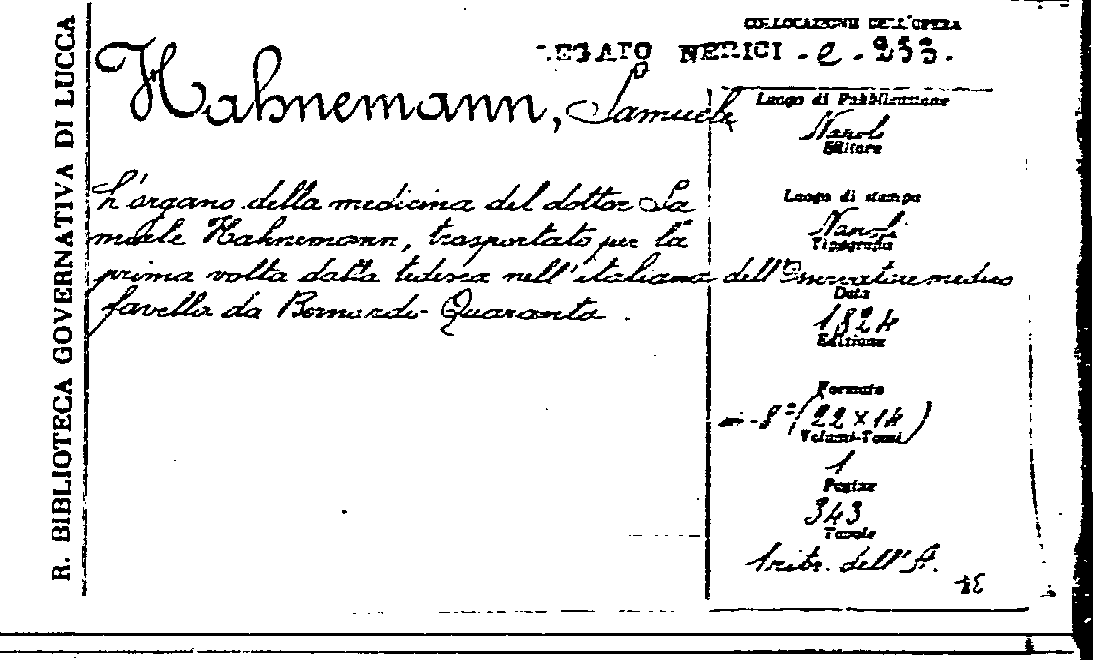 R. BIBLIOTECA GOVERNATIVA DI LUCCA
COLLOCAZIONE DELL'OPERA
LEGATO NERICI . e . 253.
Hahnemann, Samuele
L'organo della medicina del dottor Sa
muele Hahnemann, trasportato per la
prima volta dalla tedesca nell'italiana
favella da Bernardo Quaranta.
Luogo di Pubblicazione
Napoli
Editore
Luogo di stampa
Napoli
Tipografia
dell'Osservatore medico
Data
1824
Edizione
Formato
in-8°(22 x 14)
Volumi-Tomi
1
Pagine
343
Tavole
1 ritr. dell'A.